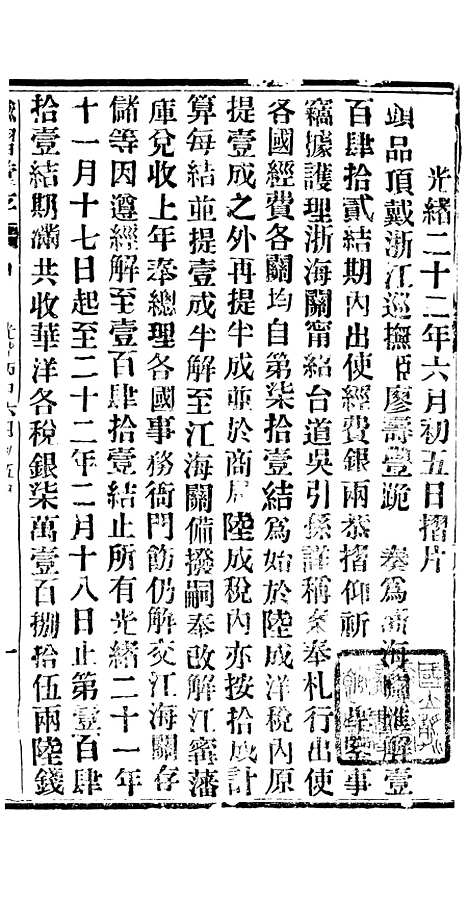 光緒二十二年六月初五日摺片
頭品頂戴浙江巡撫臣廖壽豐跪　奏爲浙海關匯解壹
百肆拾貳結期內出使經費銀兩恭摺仰祈　聖鑒事
竊據護理浙海關甯紹台道吳引孫詳稱案奉札行出使
各國經費各關均自第柒拾壹結爲始於陸成洋稅內原
提壹成之外再提半成並於商局陸成稅內亦按拾成計
算每結並提壹成半解至江海關備撥嗣奉改解江甯藩
庫兌收上年奉總理各國事務衙門飭仍解交江海關存
儲等因遵經解至壹百肆拾壹結止所有光緒二十一年
十一月十七日起至二十二年二月十八日止第壹百肆
拾壹結期滿共收華洋各稅銀柒萬壹百捌拾伍兩陸錢
一